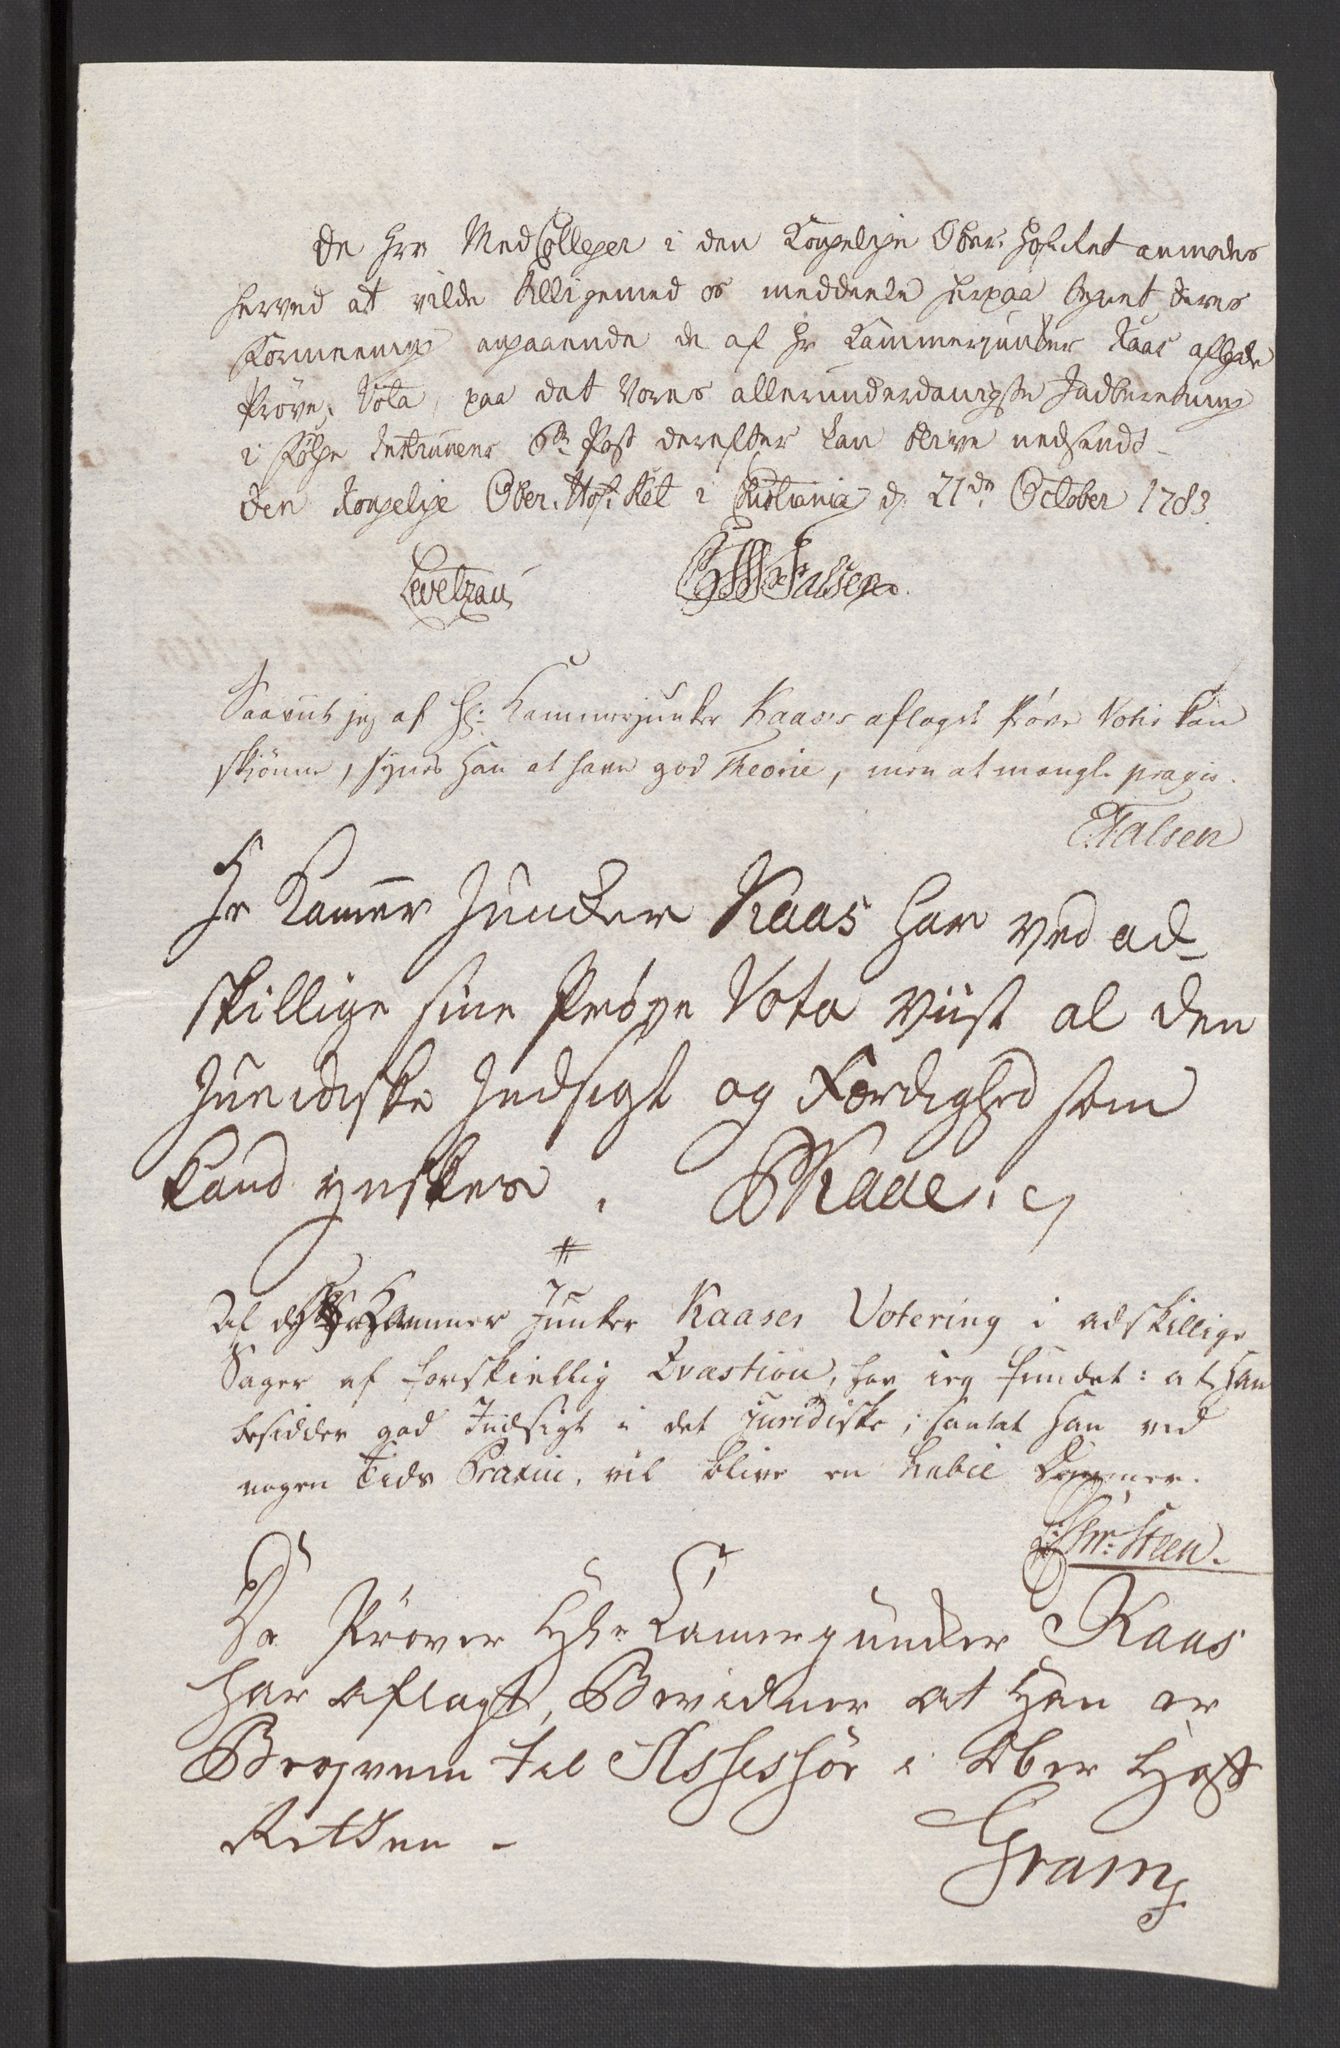 De Hrr Med Colleger i den Kongelige Ober Hof Ret anmodes
herved at vilde Alligemed os meddeele herpaa tegnet deres
Formeening angaaende de af Hr Kammerjunker Kaas aflagde
Prøve, Vota, paa dat Vores allerunderdanigste Indberetning
i Følge Instruxens 6te Post derefter kan blive nedsendt.
Den Kongelige Ober. Hof. Ret i Christiania d. 21de October 1783.
Levetzau Falsen
Saavit jeg af Hr: Kammerjunker Kaases aflagde Prøve Votis kan
skjønne, synes Han at have god Theorie, men at mangle praxis.
E. Falsen
Hr Kammer Juncker Kaas har ved ad-
skillige sine Prøve Vota viist al den
Juridiske Indsigt og Færdighed som
kand ynskes.
Af Hr Kammer Junker Kaases Votering i adskillige
Sager af forskiellig Qvæstion, har ieg fundet: at Han
besidder god Indsigt i det juridiske, samt at Han ved
nogen Tids Praxin, vil blive en habil Dommer.
Chr: Steen.
De Prøver Hr Kamerjuncker Kaas
har aflagt, Bevidner at Han er
Beqvem til Assessor i Ober Hoff
Retten -
Gram